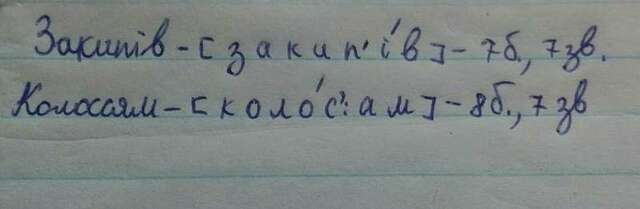 Закипів - [з а к и п' і́ в] - 7б., 7зв.
Колоссям - [к о л о́ с': а м] - 8б., 7зв